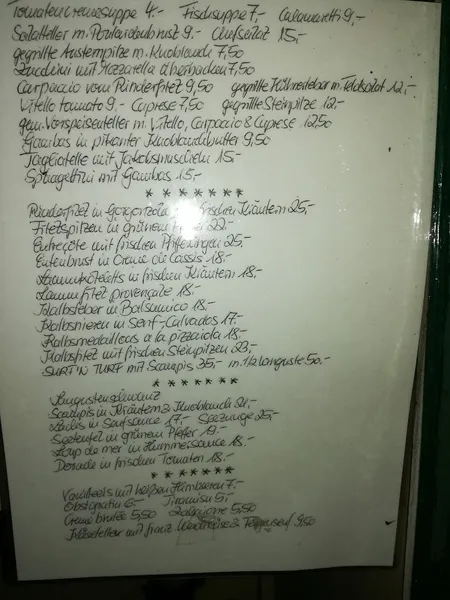 Tomatencremesuppe 4.- Fischsuppe 7,- Calamaretti 9,-
Salatteller m. Poulardenbrust 9.- Chefsalat 15,-
gegrillte Austernpilze m. Knoblauch 7,50
Zucchini mit Mozzarella überbacken 7,50
Carpaccio vom Rinderfilet 9,50 gegrillte Hühnerleber m. Feldsalat 12,-
Vitello tomato 9.- Caprese 7,50 gegrillte Steinpilze 12.-
gem. Vorspeisenteller m. Vitello, Carpaccio & Caprese 12,50
Gambas in pikanter Knoblauchbutter 9,50
Tagliatelle mit Jakobsmuscheln 15.-
Spaghettini mit Gambas 15,-
* * * * * * *
Rinderfilet in Gorgonzola frischen Kräutern 25,-
Filetspitzen in grünem Pfeffer 22.-
Entrecôte mit frischen Pfifferlingen 25.-
Entenbrust in Creme de Cassis 18.-
Lammkoteletts in frischen Kräutern 18,-
Lammfilet provençale 18.-
Kalbsleber in Balsamico 18.-
Kalbsnieren in Senf-Calvados 17.-
Kalbsmedaillons a la pizzaiola 18.-
Kalbsfilet mit frischen Steinpilzen 23,-
SURT'N TURF mit Scampis 35,- m. 1/2 Languste 50.-
* * * * * * *
Langustenschwanz
Scampis in Kräutern & Knoblauch 21,-
Lachs in Senfsauce 17.- Seezunge 25,-
Seeteufel in grünem Pfeffer 19.-
Loup de mer in Hummersauce 18.-
Dorade in frischen Tomaten 18.-
* * * * * * *
Vanilleeis mit heißen Himbeeren 7.-
Obstsalat 6.- Tiramisu 5,-
Creme brulée 5,50 Zabaione 5.50
Käseteller mit franz. & Feigensenf 9,50